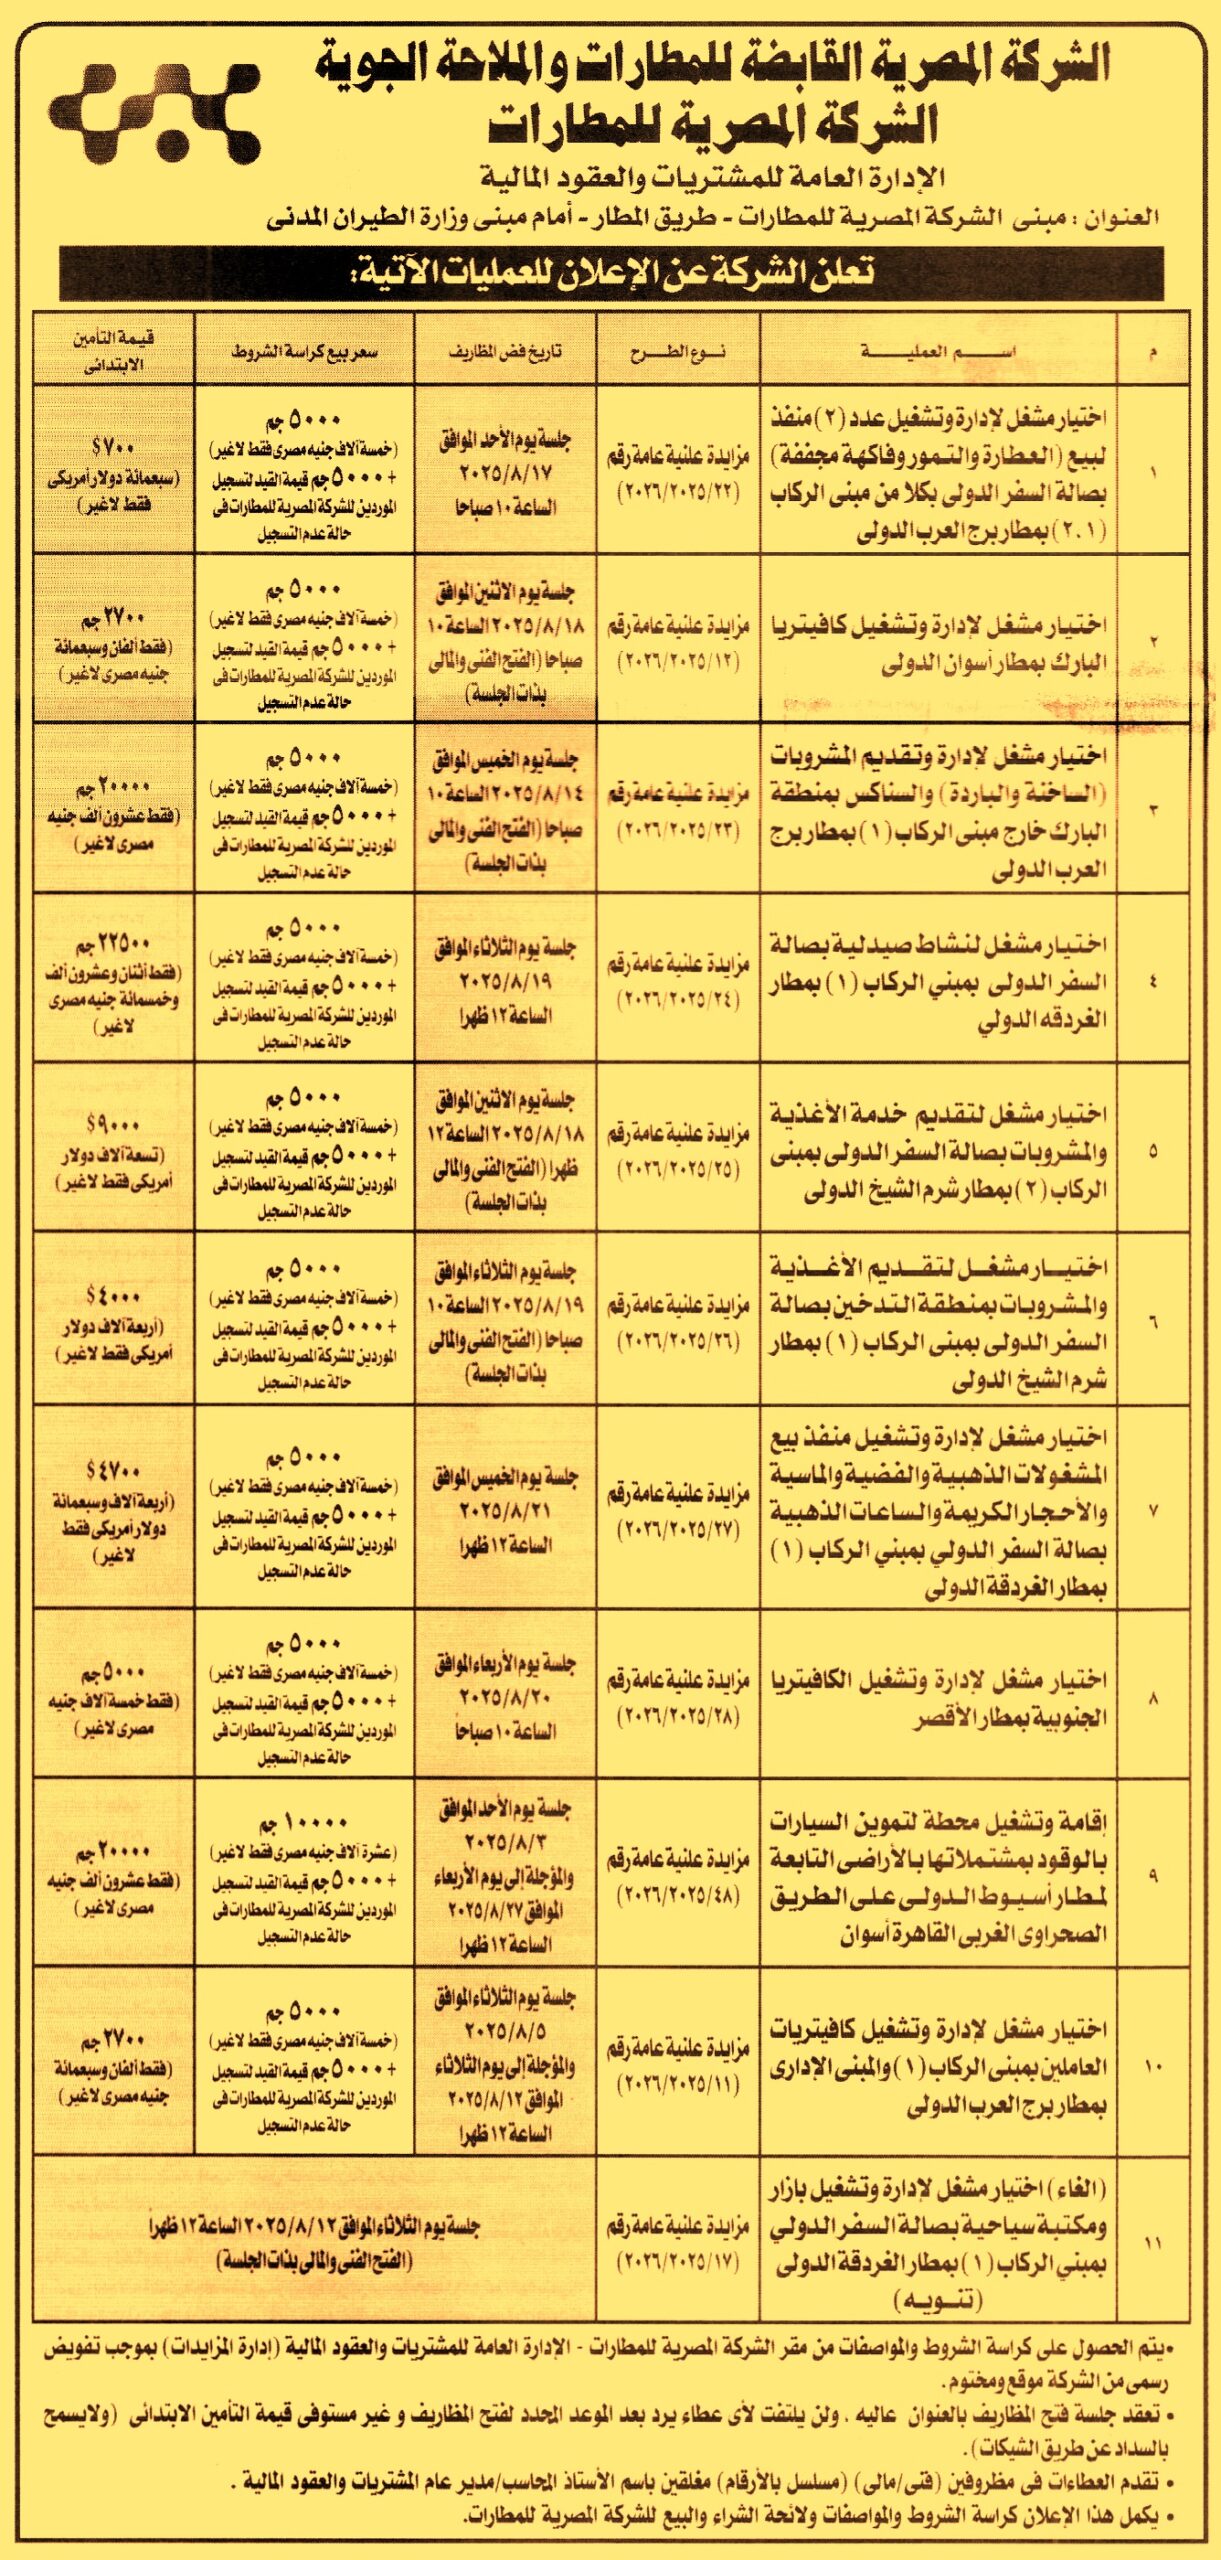 الشركة المصرية القابضة للمطارات والملاحة الجوية
الشركة المصرية للمطارات
الإدارة العامة للمشتريات والعقود المالية
العنوان : مبنى الشركة المصرية للمطارات - طريق المطار - أمام مبنى وزارة الطيران المدنى
تعلن الشركة عن الإعلان للعمليات الآتية:
م
اسم العملية
نوع الطرح
تاريخ فض المظاريف
سعر بيع كراسة الشروط
قيمة التأمين
الابتدائى
١
اختيار مشغل لإدارة وتشغيل عدد (٢) منفذ
لبيع (العطارة والتمور وفاكهة مجففة)
بصالة السفر الدولى بكلا من مبنى الركاب
(٢،١) بمطار برج العرب الدولى
مزايدة علنية عامة رقم
(٢٠٢٦/٢٠٢٥/٢٢)
جلسة يوم الأحد الموافق
٢٠٢٥/٨/١٧
الساعة ١٠ صباحا
٥٠٠٠ جم
(خمسة آلاف جنيه مصرى فقط لاغير)
+ ٥٠٠٠ جم قيمة القيد لتسجيل
الموردين للشركة المصرية للمطارات فى
حالة عدم التسجيل
٧٠٠$
(سبعمائة دولار أمريكى
فقط لاغير)
٢
اختيار مشغل لإدارة وتشغيل كافيتريا
البارك بمطار أسوان الدولى
مزايدة علنية عامة رقم
(٢٠٢٦/٢٠٢٥/١٢)
جلسة يوم الاثنين الموافق
٢٠٢٥/٨/١٨ الساعة ١٠
صباحا (الفتح الفنى والمالى
بذات الجلسة)
٥٠٠٠ جم
(خمسة آلاف جنيه مصرى فقط لاغير)
+ ٥٠٠٠ جم قيمة القيد لتسجيل
الموردين للشركة المصرية للمطارات فى
حالة عدم التسجيل
٢٧٠٠ جم
(فقط ألفان وسبعمائة
جنيه مصرى لاغير)
٣
اختيار مشغل لإدارة وتقديم المشروبات
(الساخنة والباردة) والسناكس بمنطقة
البارك خارج مبنى الركاب (١) بمطار برج
العرب الدولى
مزايدة علنية عامة رقم
(٢٠٢٦/٢٠٢٥/٢٣)
جلسة يوم الخميس الموافق
٢٠٢٥/٨/١٤ الساعة ١٠
صباحا (الفتح الفنى والمالى
بذات الجلسة)
٥٠٠٠ جم
(خمسة آلاف جنيه مصرى فقط لاغير)
+ ٥٠٠٠ جم قيمة القيد لتسجيل
الموردين للشركة المصرية للمطارات فى
حالة عدم التسجيل
٢٠٠٠٠ جم
(فقط عشرون ألف جنيه
مصرى لاغير)
٤
اختيار مشغل لنشاط صيدلية بصالة
السفر الدولى بمبني الركاب (١) بمطار
الغردقه الدولي
مزايدة علنية عامة رقم
(٢٠٢٦/٢٠٢٥/٢٤)
جلسة يوم الثلاثاء الموافق
٢٠٢٥/٨/١٩
الساعة ١٢ ظهرا
٥٠٠٠ جم
(خمسة آلاف جنيه مصرى فقط لاغير)
+ ٥٠٠٠ جم قيمة القيد لتسجيل
الموردين للشركة المصرية للمطارات فى
حالة عدم التسجيل
٢٢٥٠٠ جم
(فقط أثنان وعشرون ألف
وخمسمائة جنيه مصرى
لاغير)
٥
اختيار مشغل لتقديم خدمة الأغذية
والمشروبات بصالة السفر الدولى بمبنى
الركاب (٢) بمطار شرم الشيخ الدولى
مزايدة علنية عامة رقم
(٢٠٢٦/٢٠٢٥/٢٥)
جلسة يوم الاثنين الموافق
٢٠٢٥/٨/١٨ الساعة ١٢
ظهرا (الفتح الفنى والمالى
بذات الجلسة)
٥٠٠٠ جم
(خمسة آلاف جنيه مصرى فقط لاغير)
+ ٥٠٠٠ جم قيمة القيد لتسجيل
الموردين للشركة المصرية للمطارات فى
حالة عدم التسجيل
٩٠٠٠$
(تسعة آلاف دولار
أمريكى فقط لاغير)
٦
اختيار مشغل لتقديم الأغذية
والمشروبات بمنطقة التدخين بصالة
السفر الدولى بمبنى الركاب (١) بمطار
شرم الشيخ الدولى
مزايدة علنية عامة رقم
(٢٠٢٦/٢٠٢٥/٢٦)
جلسة يوم الثلاثاء الموافق
٢٠٢٥/٨/١٩ الساعة ١٠
صباحا (الفتح الفنى والمالى
بذات الجلسة)
٥٠٠٠ جم
(خمسة آلاف جنيه مصرى فقط لاغير)
+ ٥٠٠٠ جم قيمة القيد لتسجيل
الموردين للشركة المصرية للمطارات فى
حالة عدم التسجيل
٤٠٠٠$
(أربعة آلاف دولار
أمريكى فقط لاغير)
٧
اختيار مشغل لإدارة وتشغيل منفذ بيع
المشغولات الذهبية والفضية والماسية
والأحجار الكريمة والساعات الذهبية
بصالة السفر الدولي بمبني الركاب (١)
بمطار الغردقة الدولى
مزايدة علنية عامة رقم
(٢٠٢٦/٢٠٢٥/٢٧)
جلسة يوم الخميس الموافق
٢٠٢٥/٨/٢١
الساعة ١٢ ظهرا
٥٠٠٠ جم
(خمسة آلاف جنيه مصرى فقط لاغير)
+ ٥٠٠٠ جم قيمة القيد لتسجيل
الموردين للشركة المصرية للمطارات فى
حالة عدم التسجيل
٤٧٠٠$
(أربعة آلاف وسبعمائة
دولار أمريكى فقط
لاغير)
٨
اختيار مشغل لإدارة وتشغيل الكافيتريا
الجنوبية بمطار الأقصر
مزايدة علنية عامة رقم
(٢٠٢٦/٢٠٢٥/٢٨)
جلسة يوم الأربعاء الموافق
٢٠٢٥/٨/٢٠
الساعة ١٠ صباحاً
٥٠٠٠ جم
(خمسة آلاف جنيه مصرى فقط لاغير)
+ ٥٠٠٠ جم قيمة القيد لتسجيل
الموردين للشركة المصرية للمطارات فى
حالة عدم التسجيل
٥٠٠٠ جم
(فقط خمسة آلاف جنيه
مصرى لاغير)
٩
إقامة وتشغيل محطة لتموين السيارات
بالوقود بمشتملاتها بالأراضى التابعة
لمطار أسيوط الدولى على الطريق
الصحراوى الغربى القاهرة أسوان
مزايدة علنية عامة رقم
(٢٠٢٦/٢٠٢٥/٤٨)
جلسة يوم الأحد الموافق
٢٠٢٥/٨/٣
والمؤجلة إلى يوم الأربعاء
الموافق ٢٠٢٥/٨/٢٧
الساعة ١٢ ظهرا
١٠٠٠٠ جم
(عشرة آلاف جنيه مصرى فقط لاغير)
+ ٥٠٠٠ جم قيمة القيد لتسجيل
الموردين للشركة المصرية للمطارات فى
حالة عدم التسجيل
٢٠٠٠٠ جم
(فقط عشرون ألف جنيه
مصرى لاغير)
١٠
اختيار مشغل لإدارة وتشغيل كافيتريات
العاملين بمبنى الركاب (١) والمبنى الإدارى
بمطار برج العرب الدولى
مزايدة علنية عامة رقم
(٢٠٢٦/٢٠٢٥/١١)
جلسة يوم الثلاثاء الموافق
٢٠٢٥/٨/٥
والمؤجلة إلى يوم الثلاثاء
الموافق ٢٠٢٥/٨/١٢
الساعة ١٢ ظهرا
٥٠٠٠ جم
(خمسة آلاف جنيه مصرى فقط لاغير)
+ ٥٠٠٠ جم قيمة القيد لتسجيل
الموردين للشركة المصرية للمطارات فى
حالة عدم التسجيل
٢٧٠٠ جم
(فقط ألفان وسبعمائة
جنيه مصرى لاغير)
١١
(الغاء) اختيار مشغل لإدارة وتشغيل بازار
ومكتبة سياحية بصالة السفر الدولي
بمبني الركاب (١) بمطار الغردقة الدولى
(تنويه)
مزايدة علنية عامة رقم
(٢٠٢٦/٢٠٢٥/١٧)
جلسة يوم الثلاثاء الموافق ٢٠٢٥/٨/١٢ الساعة ١٢ ظهراً
(الفتح الفنى والمالى بذات الجلسة)
•يتم الحصول على كراسة الشروط والمواصفات من مقر الشركة المصرية للمطارات - الإدارة العامة للمشتريات والعقود المالية (إدارة المزايدات) بموجب تفويض
رسمى من الشركة موقع ومختوم .
• تعقد جلسة فتح المظاريف بالعنوان عاليه . ولن يلتفت لأى عطاء يرد بعد الموعد المحدد لفتح المظاريف و غير مستوفى قيمة التأمين الابتدائى (ولايسمح
بالسداد عن طريق الشيكات).
• تقدم العطاءات فى مظروفين (فنى/مالى) (مسلسل بالأرقام) مغلقين باسم الأستاذ المحاسب/مدير عام المشتريات والعقود المالية .
• يكمل هذا الإعلان كراسة الشروط والمواصفات ولائحة الشراء والبيع للشركة المصرية للمطارات.